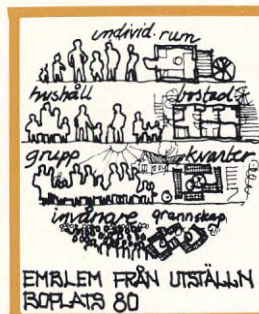 individ. rum
hushåll bostad
grupp kvarter
invånare grannskap
EMBLEM FRÅN UTSTÄLLN
BOPLATS 80